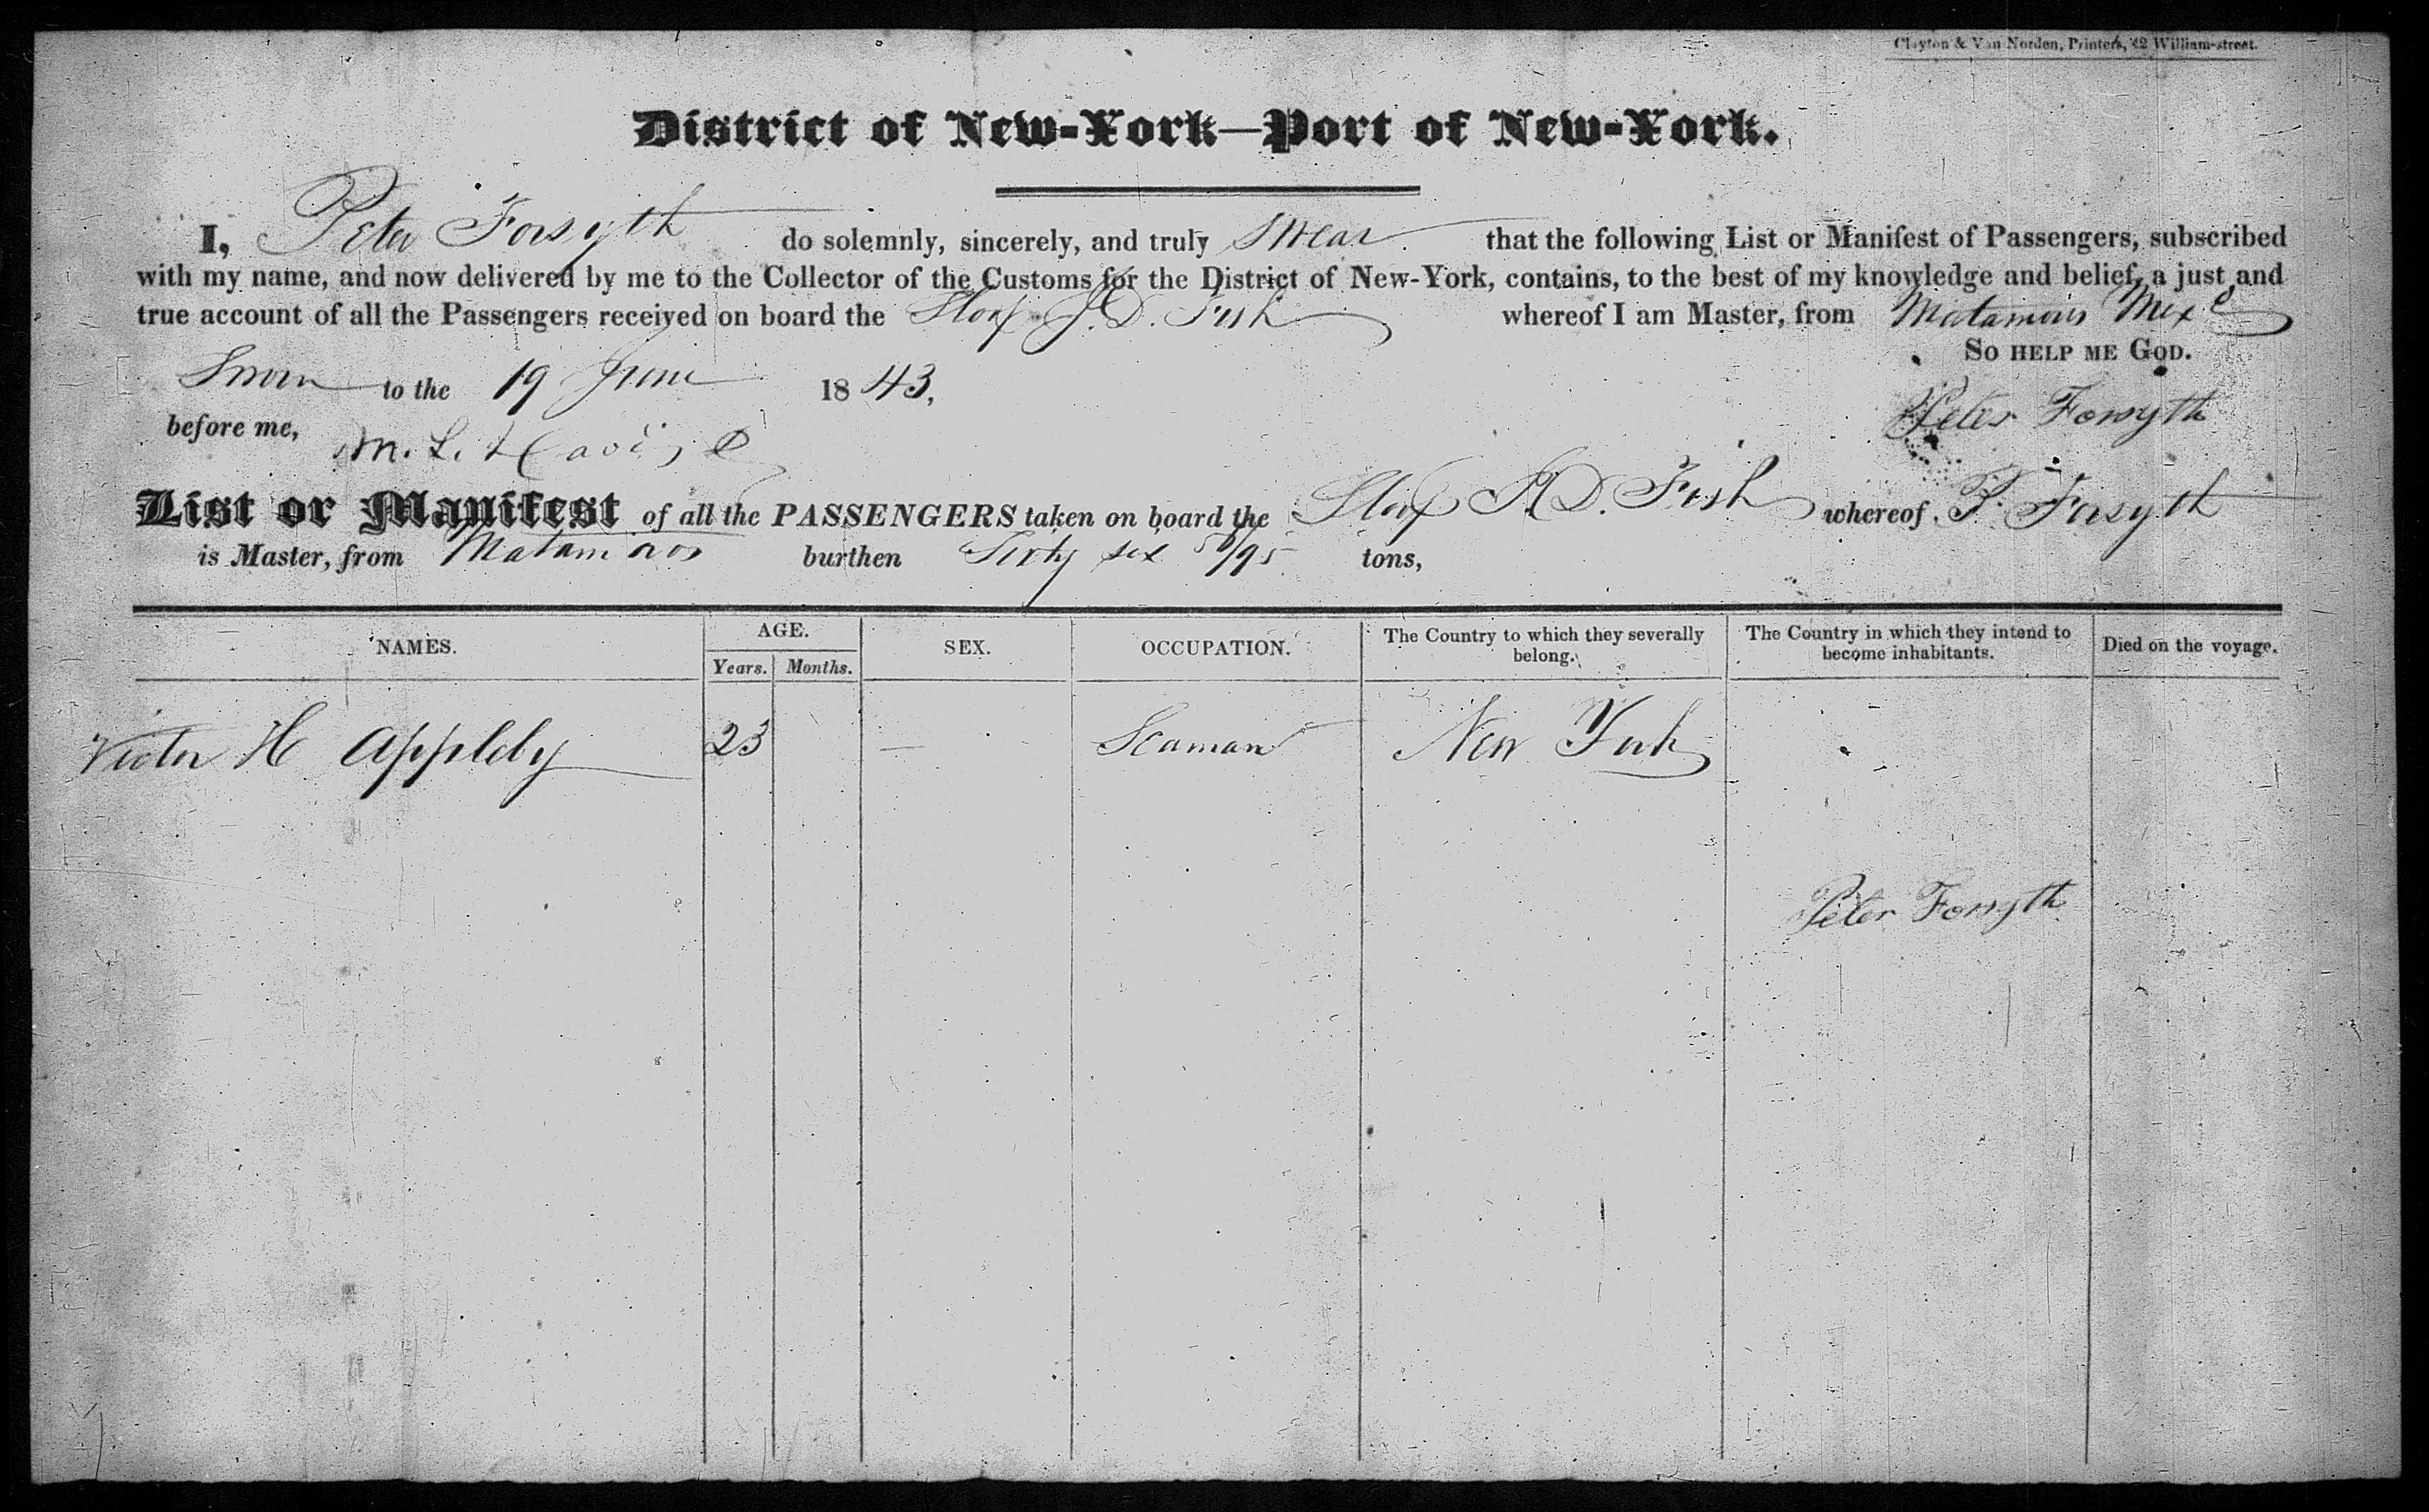 Clayton & Van Norden, Printers, 42 William-street.
District of New-York—Port of New-York.
I, Peter Forsyth do solemnly, sincerely, and truly swear that the following List or Manifest of Passengers, subscribed
with my name, and now delivered by me to the Collector of the Customs for the District of New-York, contains, to the best of my knowledge and belief, a just and
true account of all the Passengers received on board the Sloop J. D. Fish whereof I am Master, from Matamoros Mexo
So HELP ME GOD.
Sworn to the 19 June 1843,
Peter Forsyth
before me,
M. L.
List or Manifest of all the PASSENGERS taken on board the Sloop D. Fish whereof P. Forsyth
is Master, from Matamoros burthen Sixty six /95 tons,
NAMES. AGE. SEX. OCCUPATION. The Country to which they severally belong. The Country in which they intend to become inhabitants. Died on the voyage.
Years. Months.
Victor H Appleby 23 — Seaman New York
Peter Forsyth